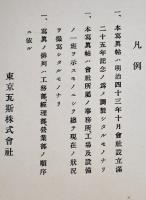 凡例
一、本寫眞帖ハ明治四十三年十月會社設立滿
二十五年記念ノ爲メ調製シタルモノナリ
一、本寫眞帖ハ會社所屬ノ事務所工場及設備
ノ一班ヲ示スモノニシテ總テ現在ノ狀況
ヲ撮寫シタルモノナリ
一、寫眞ノ排列ハ工務部經理部營業部ノ順序
ニ依ル
東京瓦斯株式會社